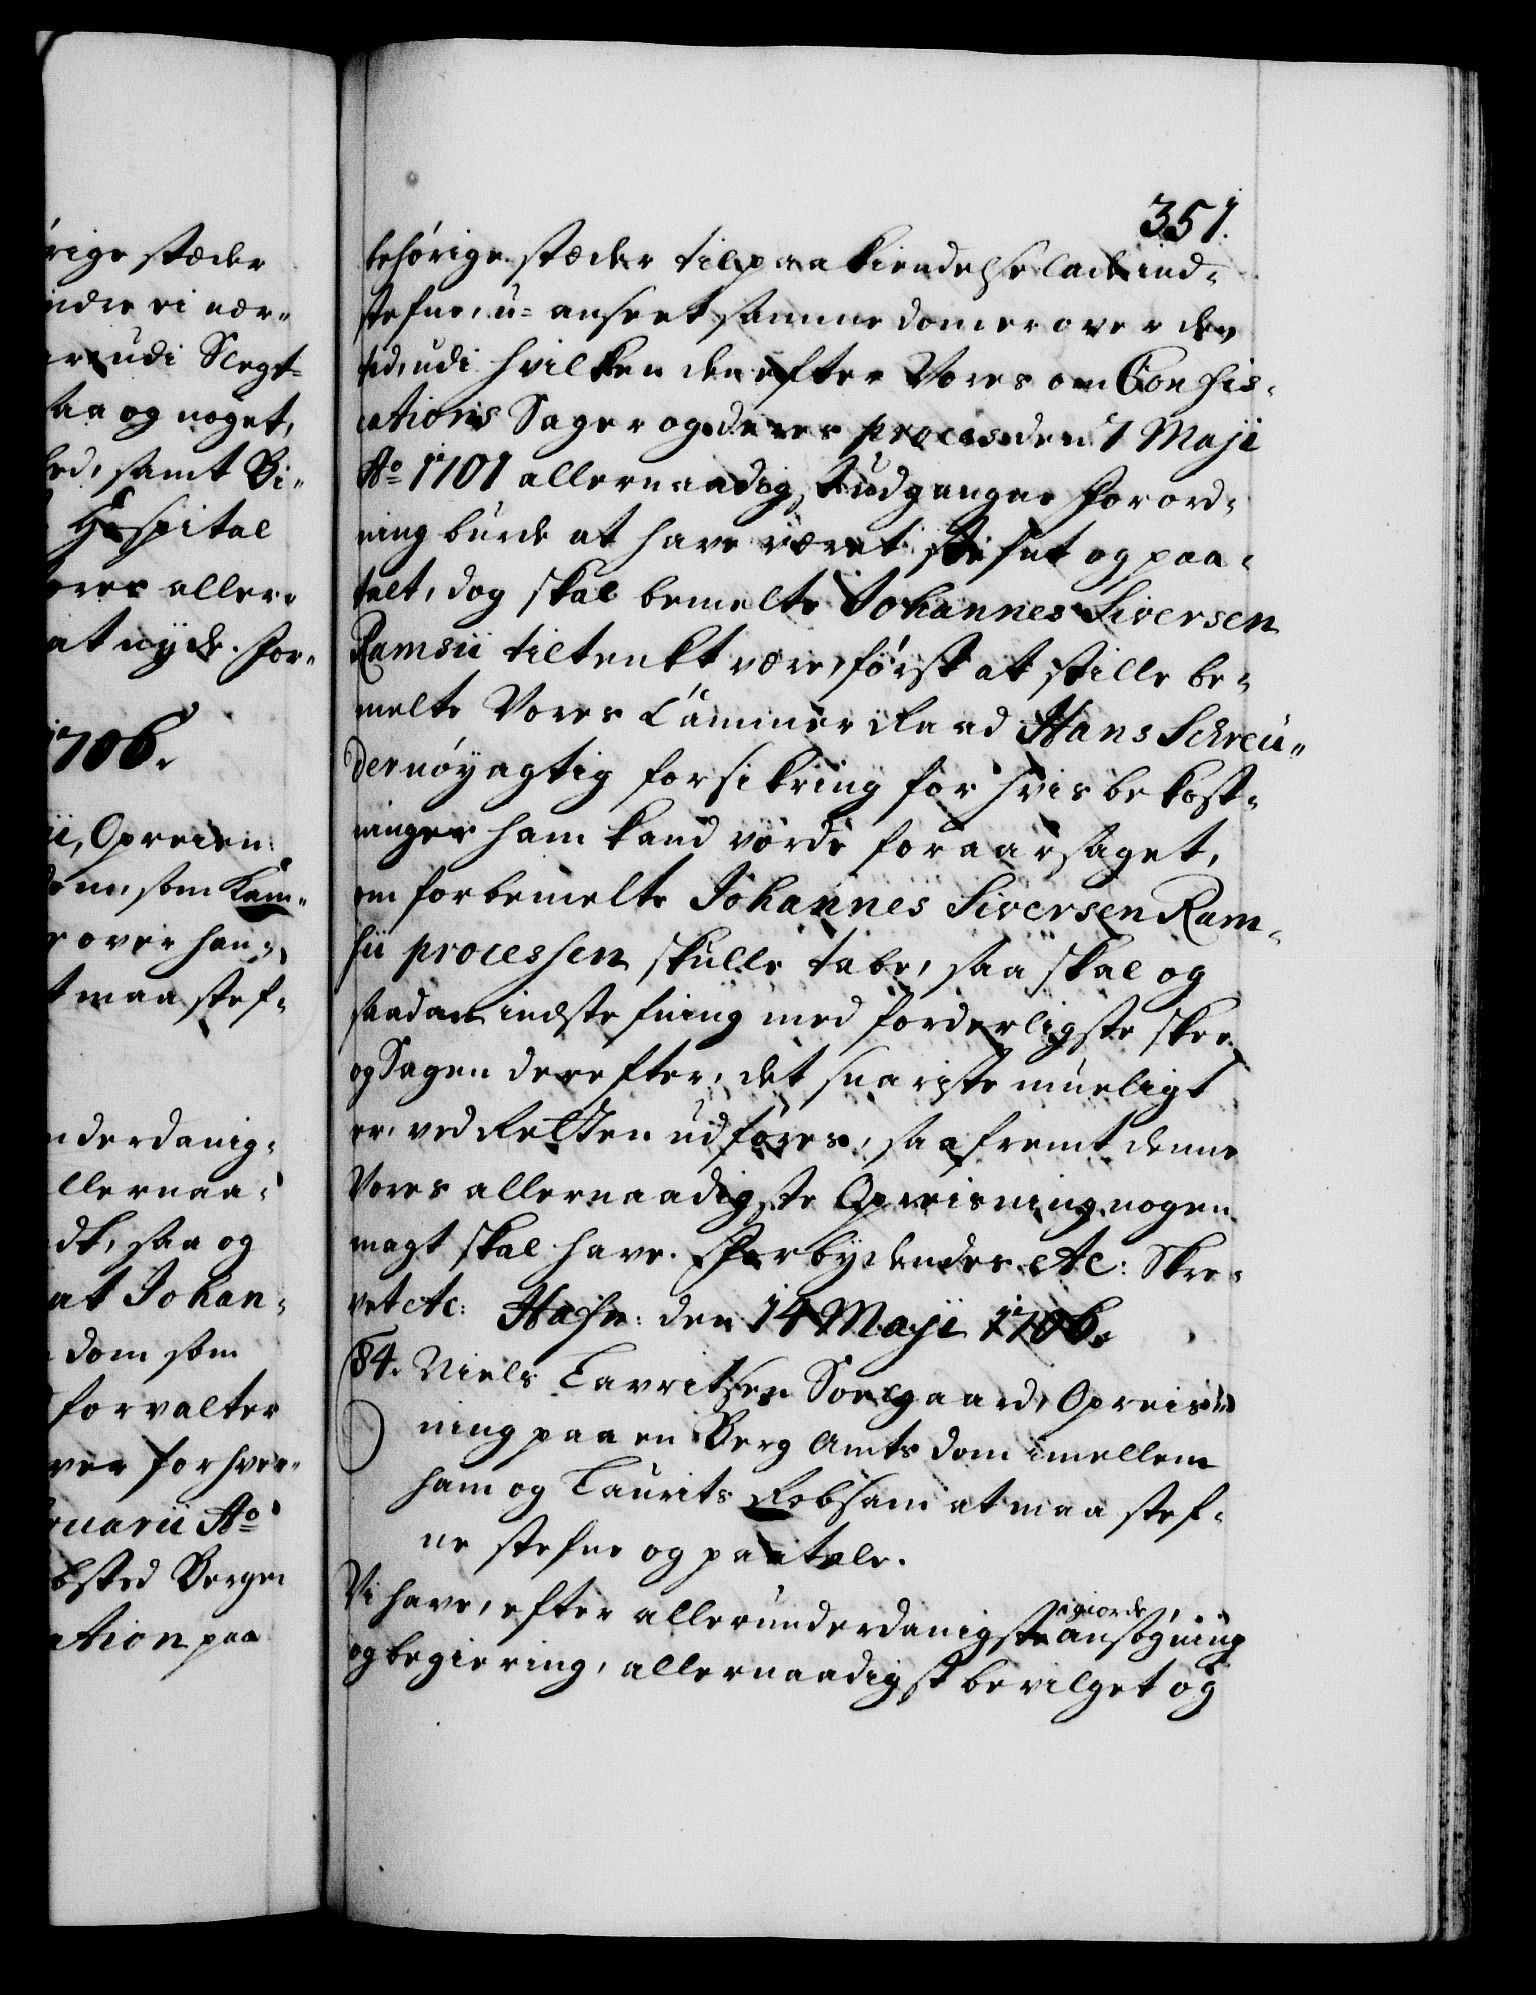 rige stæder
indre vi nær¬
udi Slegt¬
saa og noget,
samt Bi¬
Hospital
vores aller¬
at nyde. For¬
1706.
ii, Opreisn:
dom, som Kam¬
over han¬
maa stef¬
nderdanig¬
llernaa¬
dt, saa og
at Johan¬
dom som
forvalter
forhver¬
ruarii Ao
sted Bergen
ation paa
351.
behörige stæder til paakiendelse lade ind¬
stefne, u=anseet samme domer over den
tid, udi hvilken den efter Vores om Confis¬
cations Sager og deres proces den 7 Maji
Ao 1701 allernaadigst udgangne Forord¬
ning burde at have været stefnt og paa¬
talt, dog skal bemelte Johannes Siversen
Ramsii tiltenkt være, först at stille be¬
melte Vores Cammer Raad Hans Schreu¬
der nöyagtig forsikring for hvis bekost¬
ninger ham kand vorde foraarsaget,
om forbemelte Johannes Siversen Ram¬
sii processen skulle tabe, saa skal og
saadan indstefning med forderligste skee
og Sagen derefter, det snariste mueligt
er, ved Retten udföres, saafremt denne
Vores allernaadigste Opreisning nogen
magt skal have. Forbydendes etc: Skre¬
vet etc: Hafn: den 14 Maji 1706.
84. Niels Lavritzen Soelgaard, Opreis¬
ning paa en Berg Amts dom imellem
ham og Laurits Robsam at maa stef¬
ne stefne og paatale.
Vi have, efter allerunderdanigste giorde ansögning
og begiering, allernaadigst bevilget og